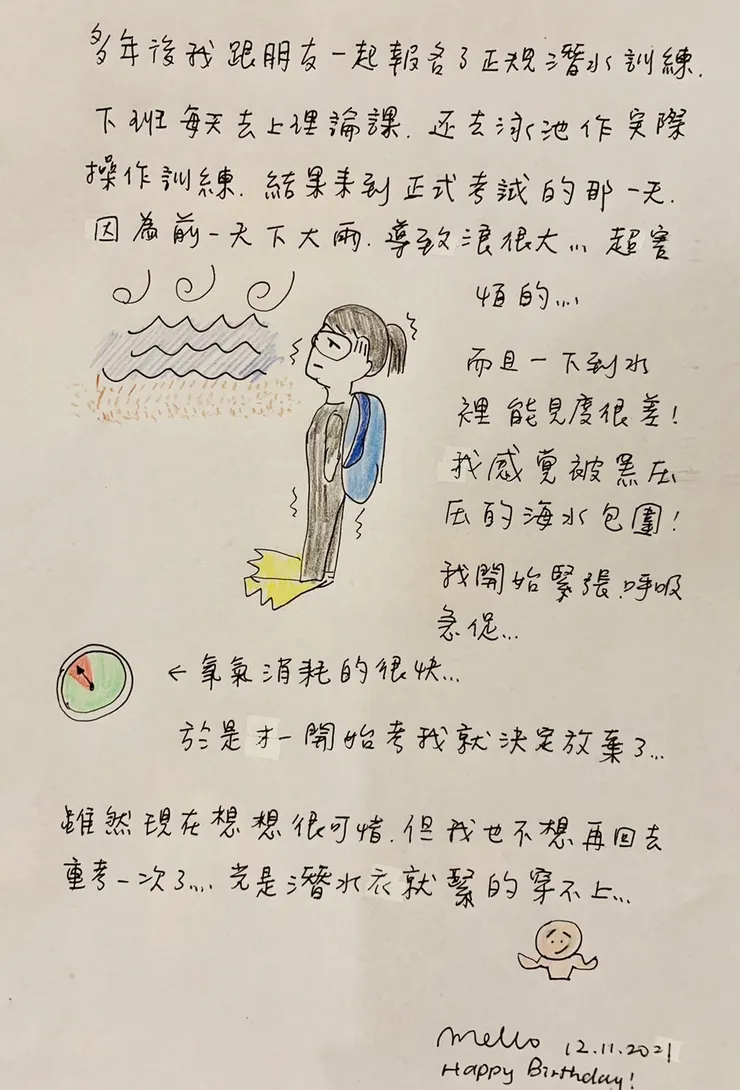 多年後我跟朋友一起報名了正規潛水訓練.
下班每天去上理論課.還去泳池作實際
操作訓練.結果來到正式考試的那一天.
因為前一天下大雨.導致浪很大...超害
怕的...
而且一下到水
裡能見度很差!
我感覺被黑压
压的海水包圍!
我開始緊張.呼吸
急促...
←氧氣消耗的很快...
於是才一開始考我就決定放棄了...
雖然現在想想很可惜.但我也不想再回去
重考一次了...光是潛水衣就緊的穿不上...
Mello 12.11.2021
Happy Birthday!